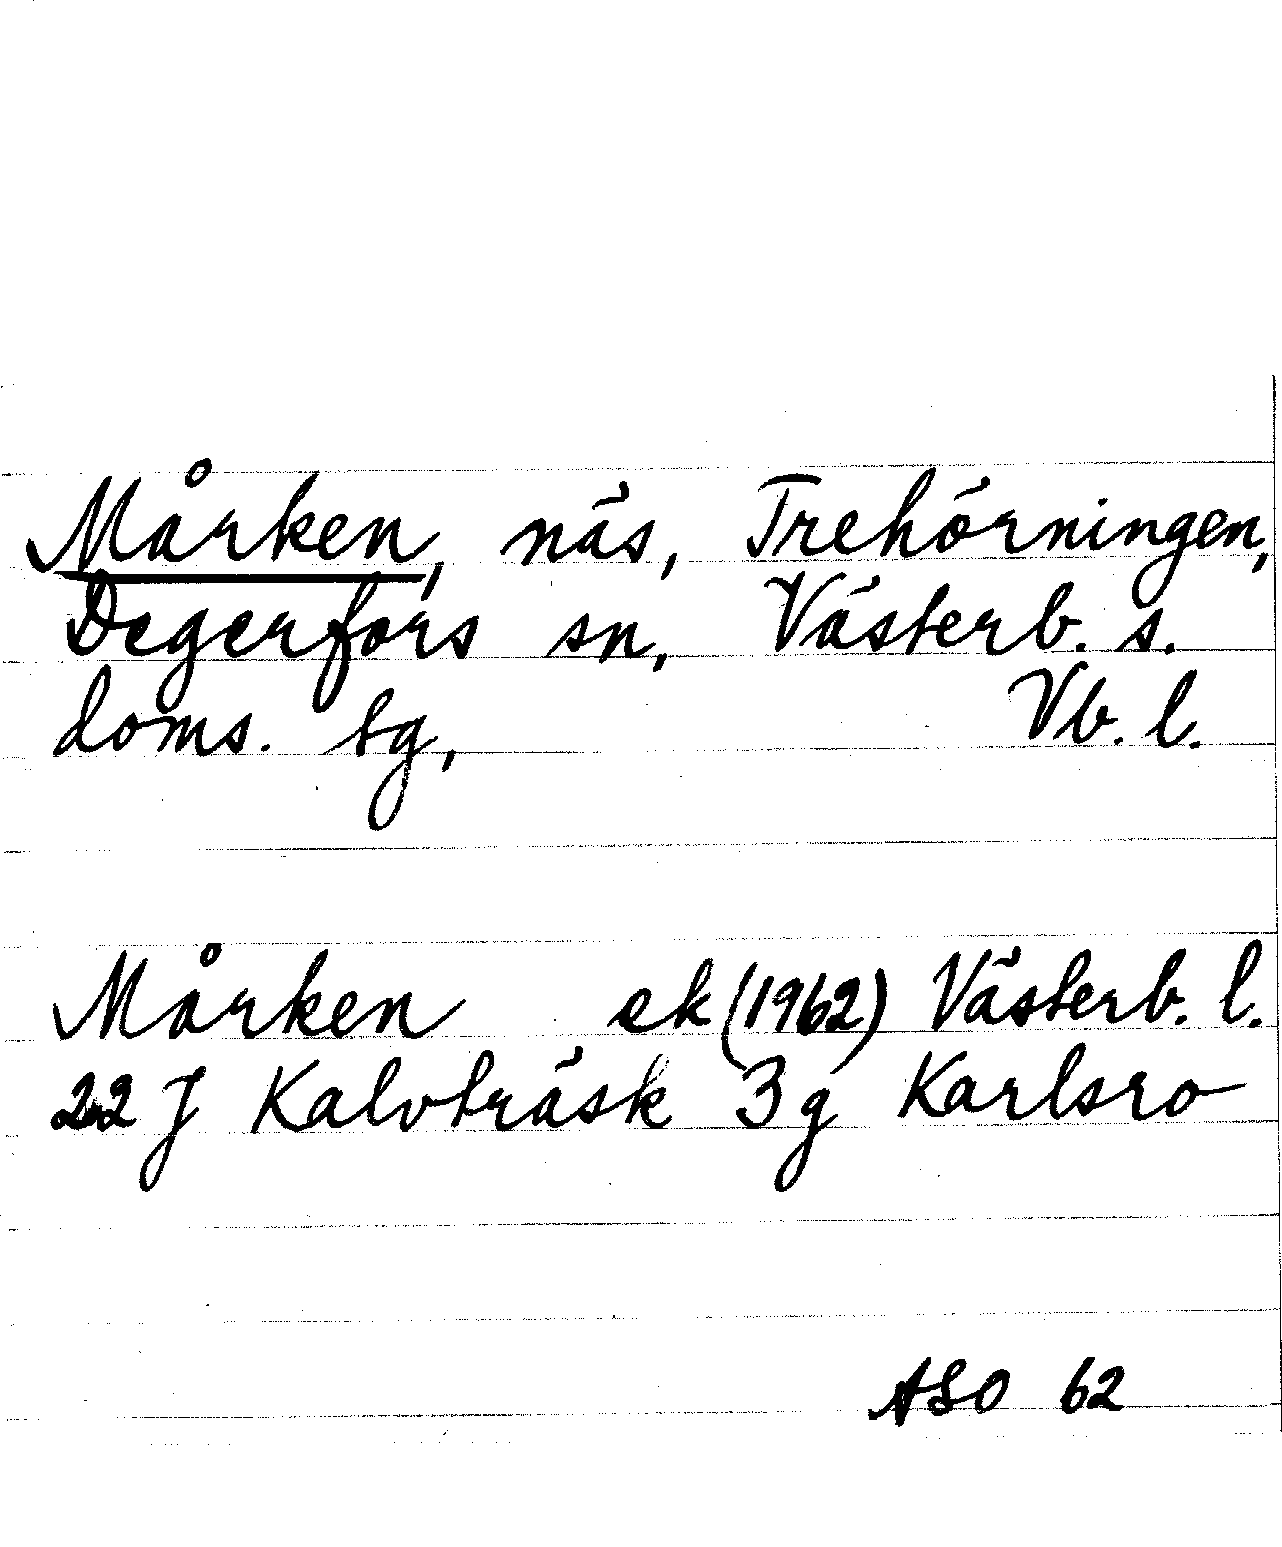 Mårken, näs, Trehörningen,
Degerfors sn, Västerb. s.
doms. tg, Vb. l.
Mårken ek (1962) Västerb. l.
22 J Kalvträsk 3 g Karlsro
ASO 62